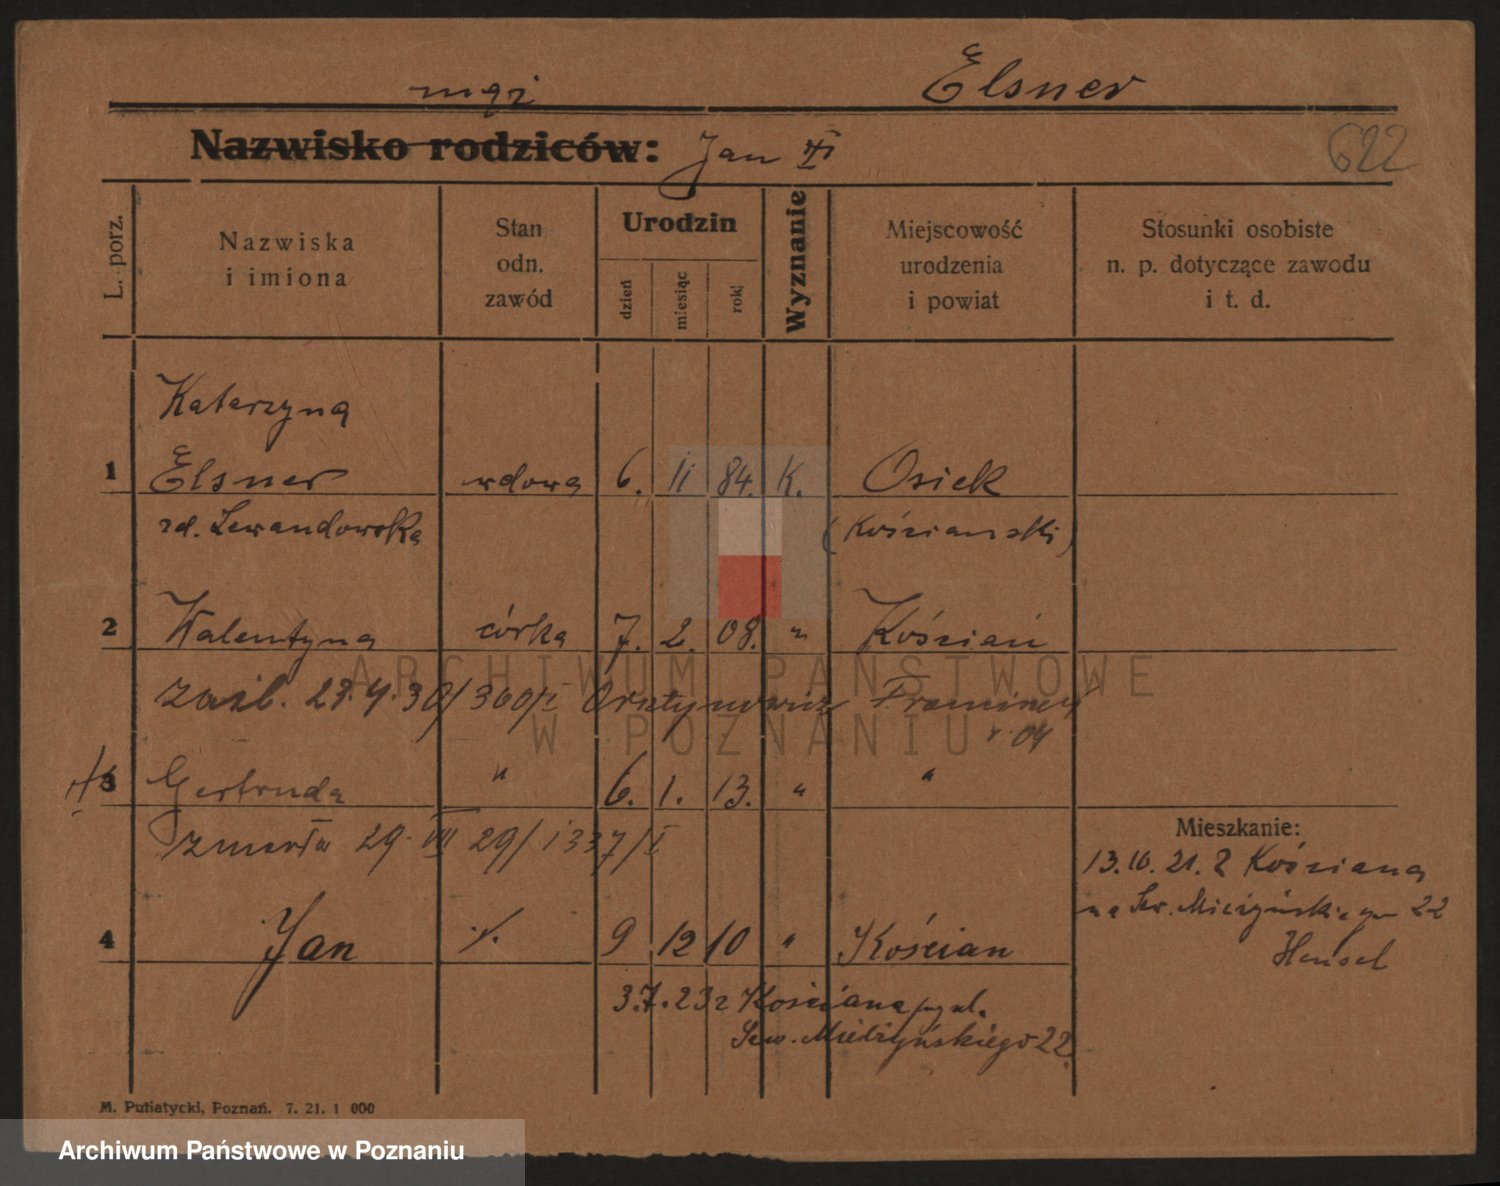 Elsner
męż
Nazwisko rodziców: Jan
622
L. porz.
Nazwiska
i imiona
Stan
odn.
zawód
Urodzin
dzień
miesiąc
rok
Wyznanie
Miejscowość
urodzenia
i powiat
Stosunki osobiste
n. p. dotyczące zawodu
i t. d.
Katarzyna
1 Elsner wdowa 6. 11 84. K. Osiek
zd. Lewandowska (Kościański)
2 Walentyna córka 7. 2. 08. " Kościan
zaśl. 28.4.30/360/I
r. 04
3 Gertruda " 6. 1. 13. " "
zmarła 29. VII 29/1337/I
Mieszkanie:
13.10.21. z Kościana
na Sew. Mielżyńskiego 22
Hensel
4 Jan ./. 9 12 10 " Kościan
3.7.23 z Kościana
Sew. Mielżyńskiego 22
M. Putiatycki, Poznań. 7. 21. 1 000
ARCHIWUM PAŃSTWOWE
W POZNANIU
Archiwum Państwowe w Poznaniu